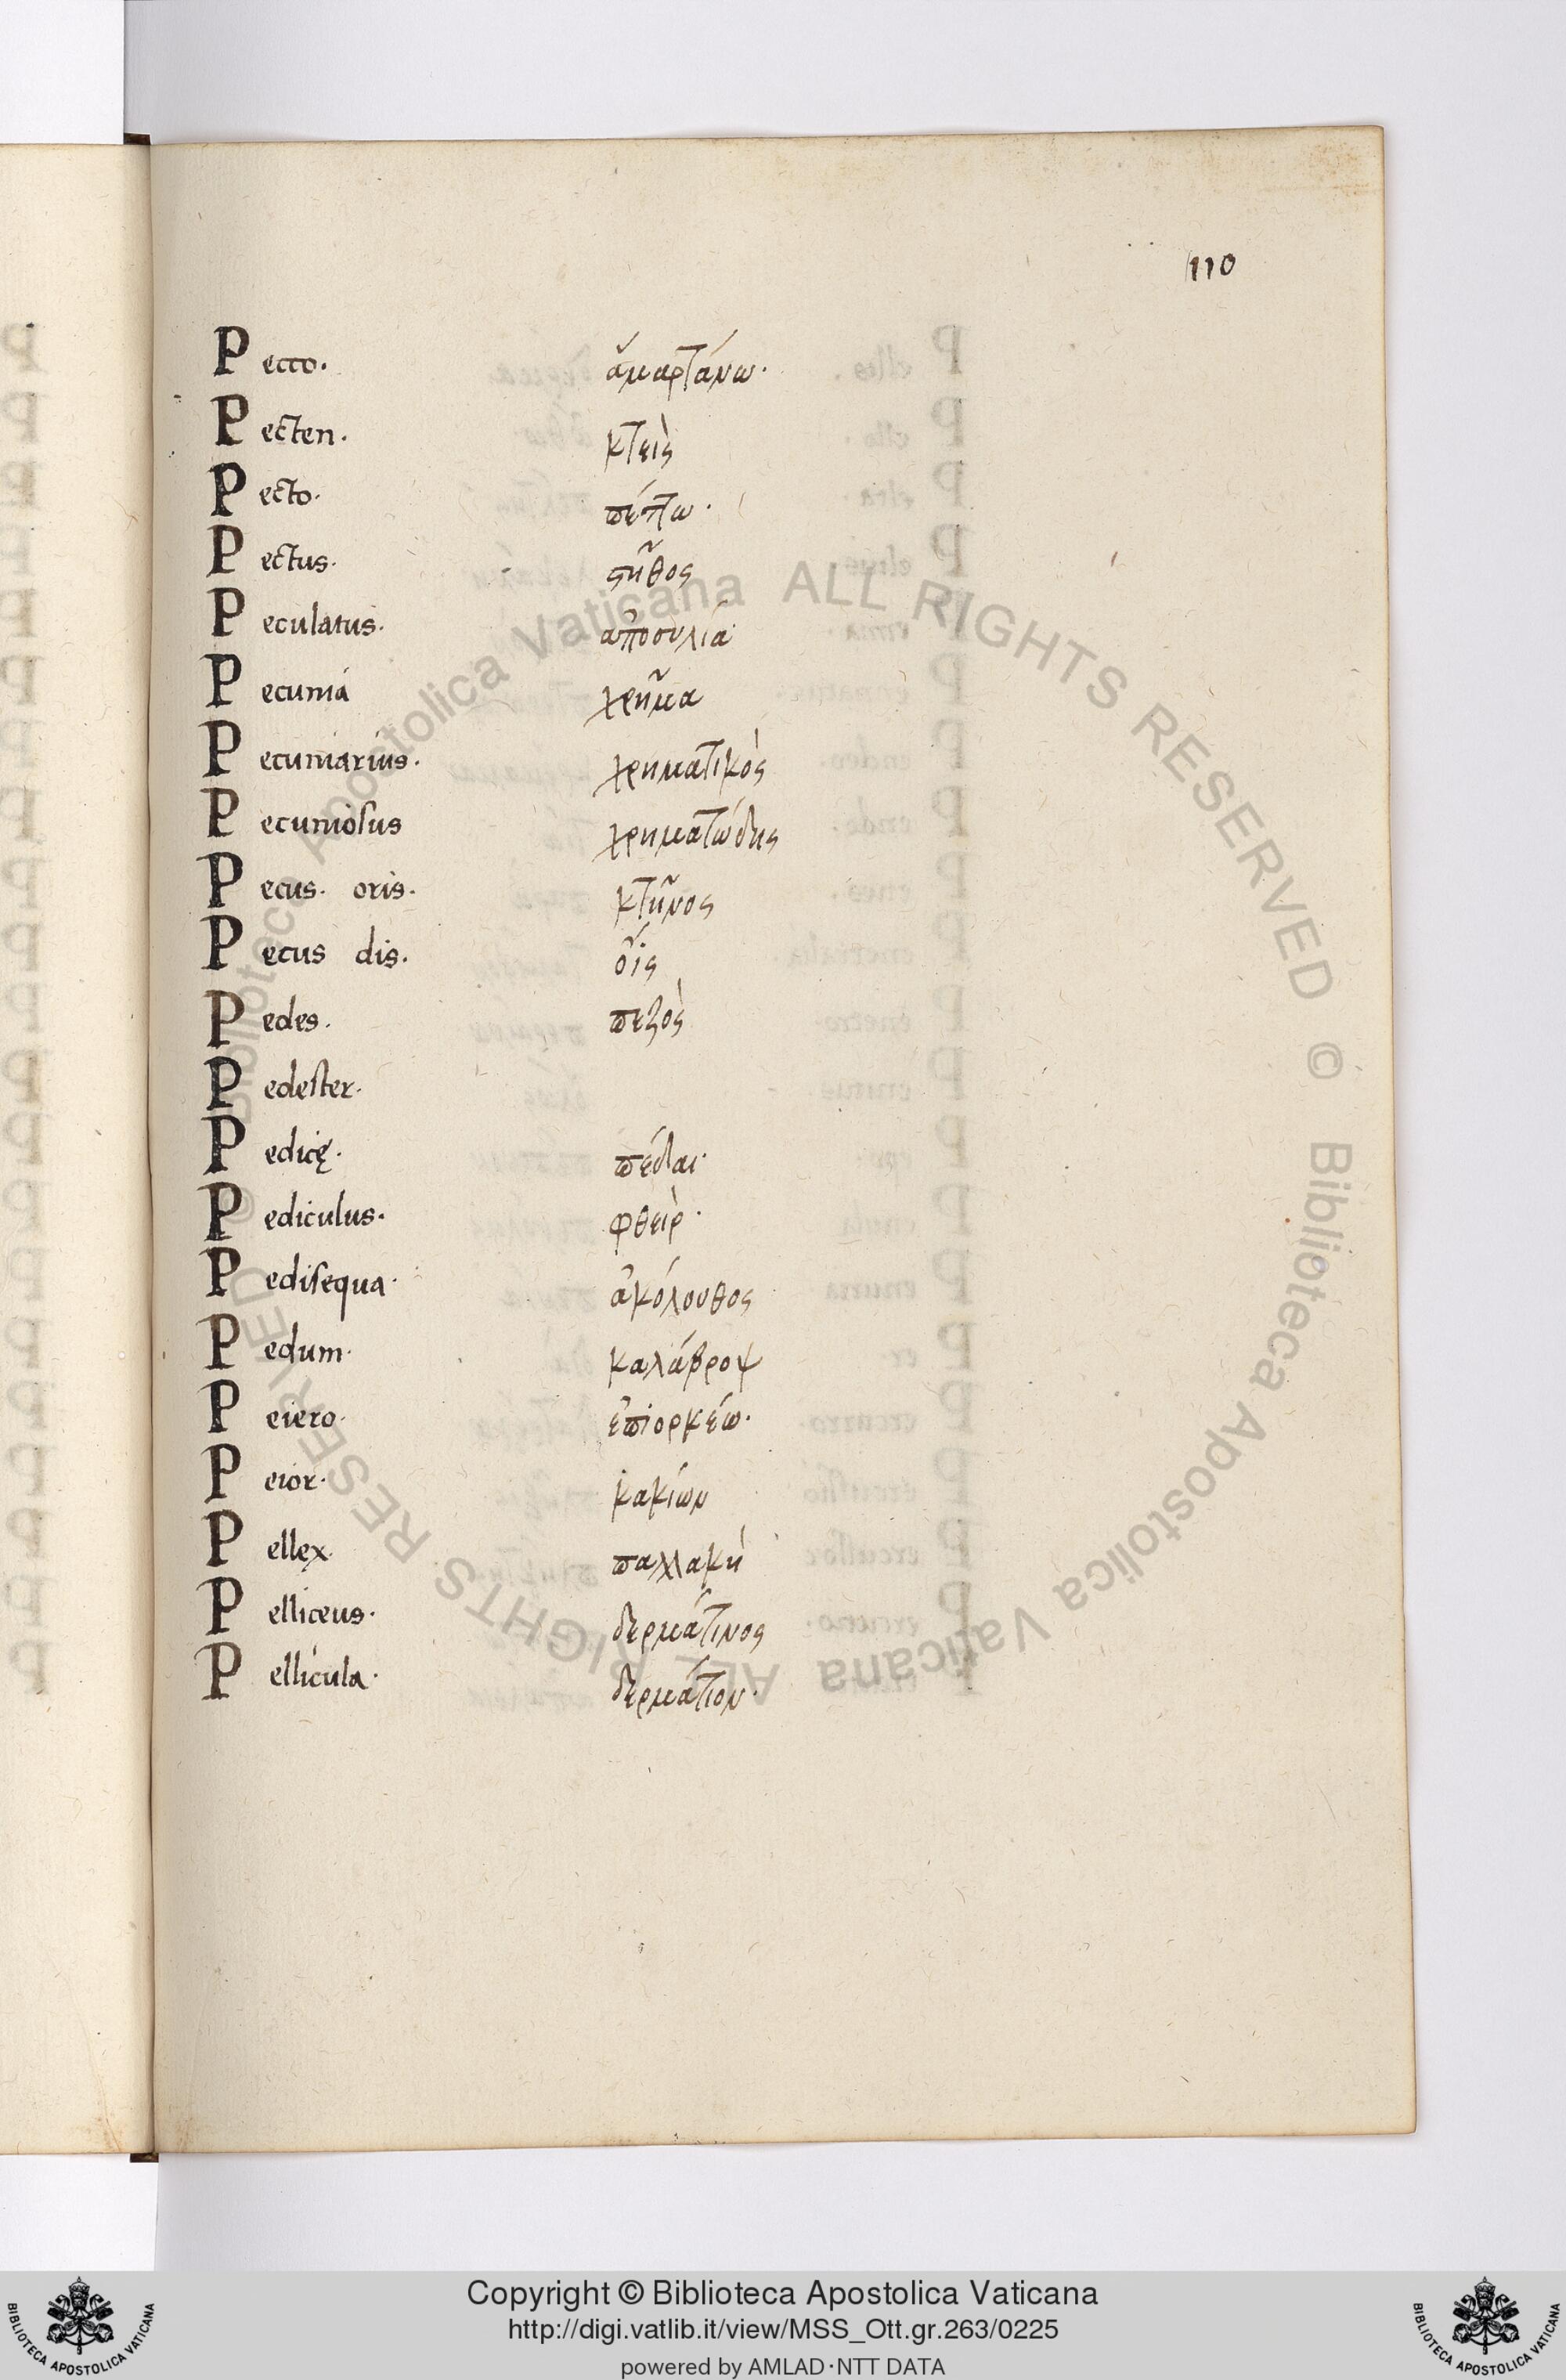 110
Pecco. ἁμαρτάνω.
Pecten. κτεὶς
Pecto. πέπτω.
Pectus. στῆθος
Peculatus. ἀποσυλία
Pecunia χρῆμα
Pecuniarius. χρηματικὸς
Pecuniosus χρηματώδης
Pecus. oris. κτῆνος
Pecus dis. ὄϊς
Pedes. πεζὸς
Pedester.
Pedicę. πέδαι.
Pediculus. φθεὶρ.
Pedisequa. ἀκόλουθος
Pedum. καλάβροψ
Peiero. ἐπιορκέω.
Peior. κακίων
Pellex. παλλακὴ
Pelliceus. δερμάτινος
Pellicula. δερμάτιον.
Biblioteca Apostolica Vaticana ALL RIGHTS RESERVED © Biblioteca Apostolica Vaticana ALL RIGHTS RESERVED ©
Copyright © Biblioteca Apostolica Vaticana
http://digi.vatlib.it/view/MSS_Ott.gr.263/0225
powered by AMLAD·NTT DATA
BIBLIOTECA APOSTOLICA VATICANA
BIBLIOTECA APOSTOLICA VATICANA